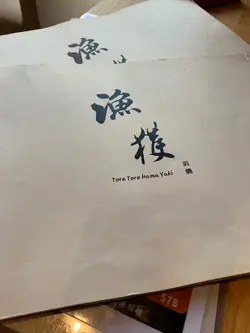 漁
漁
獲
浜焼
Tore Tore Hama Yaki
$78